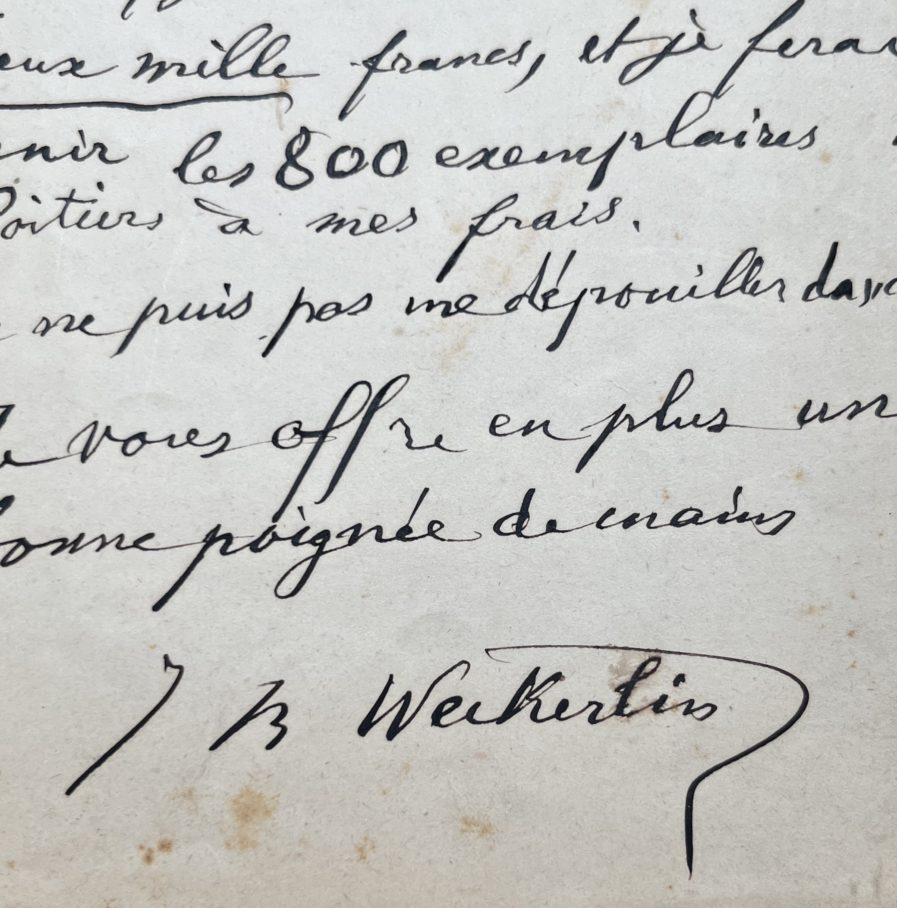 eux mille francs, et je ferai
enir les 800 exemplaires
Poitiers à mes frais.
ne puis pas me dépouiller dava
Je vous offre en plus un
bonne poignée de mains
J B Weckerlin